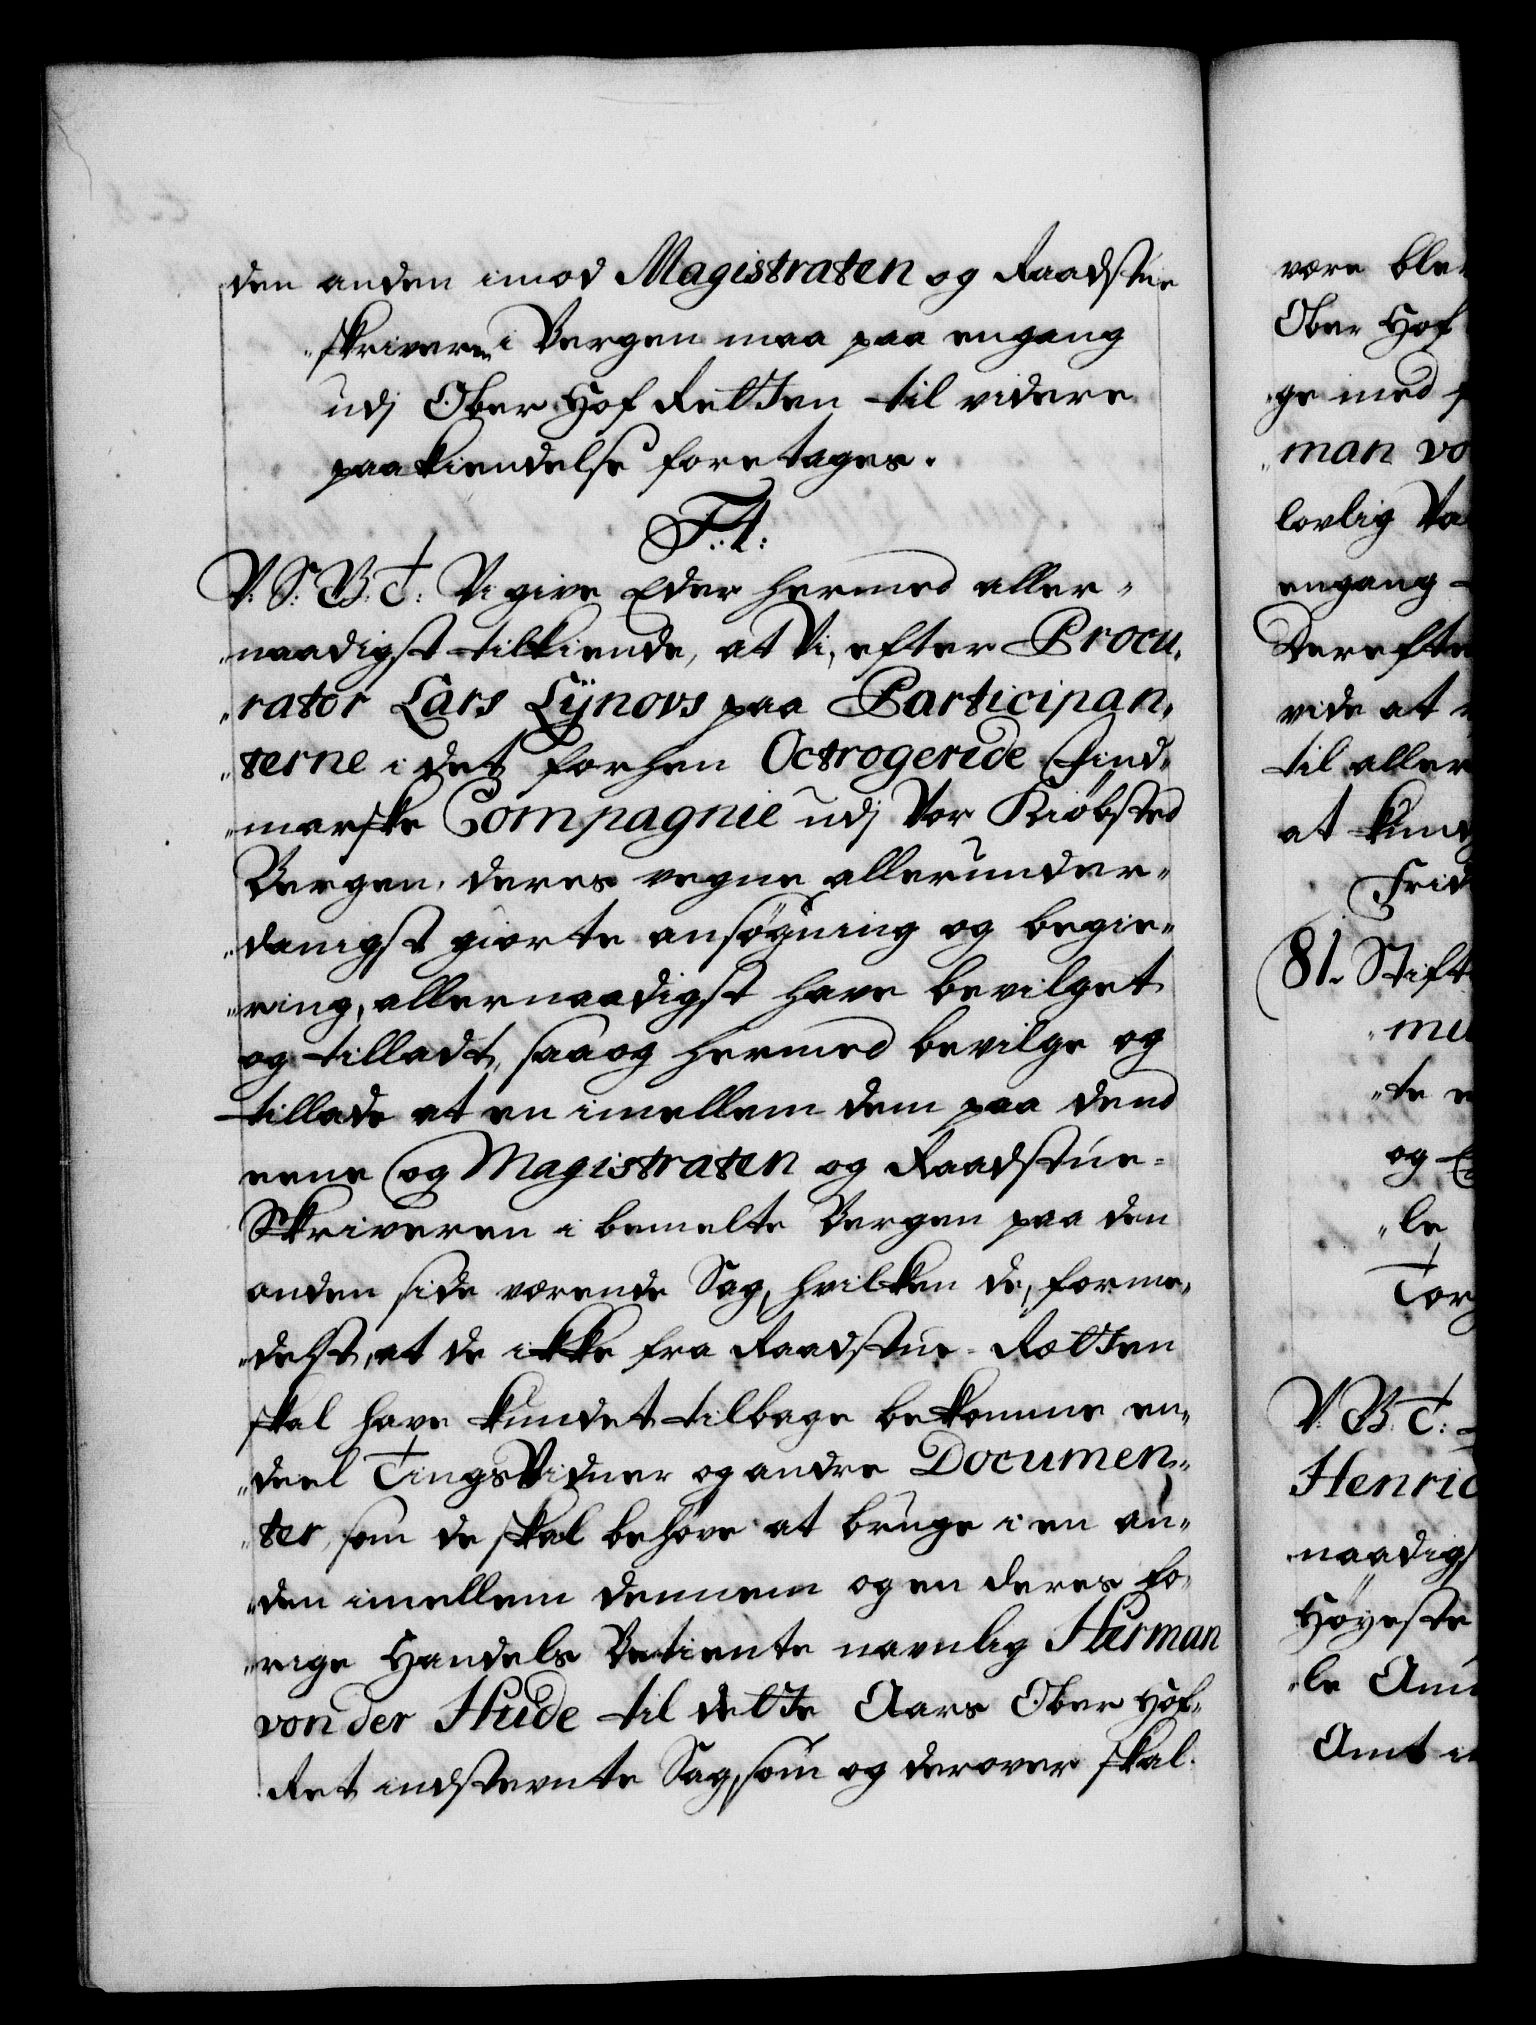 den anden imod Magistraten og Raadstue
"skriveren i Bergen maa paa engang
udj Ober Hof Retten til videre
paakiendelse foretages.
F. 4:
V. S: B: T: Vi give Eder hermed aller"
"naadigst tilkiende, at Vi, efter Procu,
"rator Lars Lÿnovs paa Participan,
"terne i det forhen Octrogeride Find,
"marske Compagnie udj Vor Kiöbsted
Bergen, deres vegne allerunder"
"danigst giorte ansögning og begie"
"ring, allernaadigst have bevilget
og tilladt, saa og hermed bevilge og
tillade at en imellem dem paa dend
eene og Magistraten og Raadstue=
Skriveren i bemelte Bergen paa den
anden side værende Sag, hvilken de, forme,
"delst, at de ikke fra Raadstue-Retten
skal have kundet tilbage bekomme en"
"deel TingsVidner og andre Documen"
"ter, som de skal behöve at bruge i en an"
"den imellem dennem og en deres fo,
"rige Handels Betiente navnlig Herman
von der Hude til dette Aars Ober Hof-
Ret indstevnte Sag, som og derover skal
være ble
Ober Hof
ge med
man vo
lovlig
engang
Derefte
vide at
til aller
at kund
Frid
81. Stift
te
og
le
Tor
V: B: T:
Henric
naadigs
Höyeste
"le
Amt